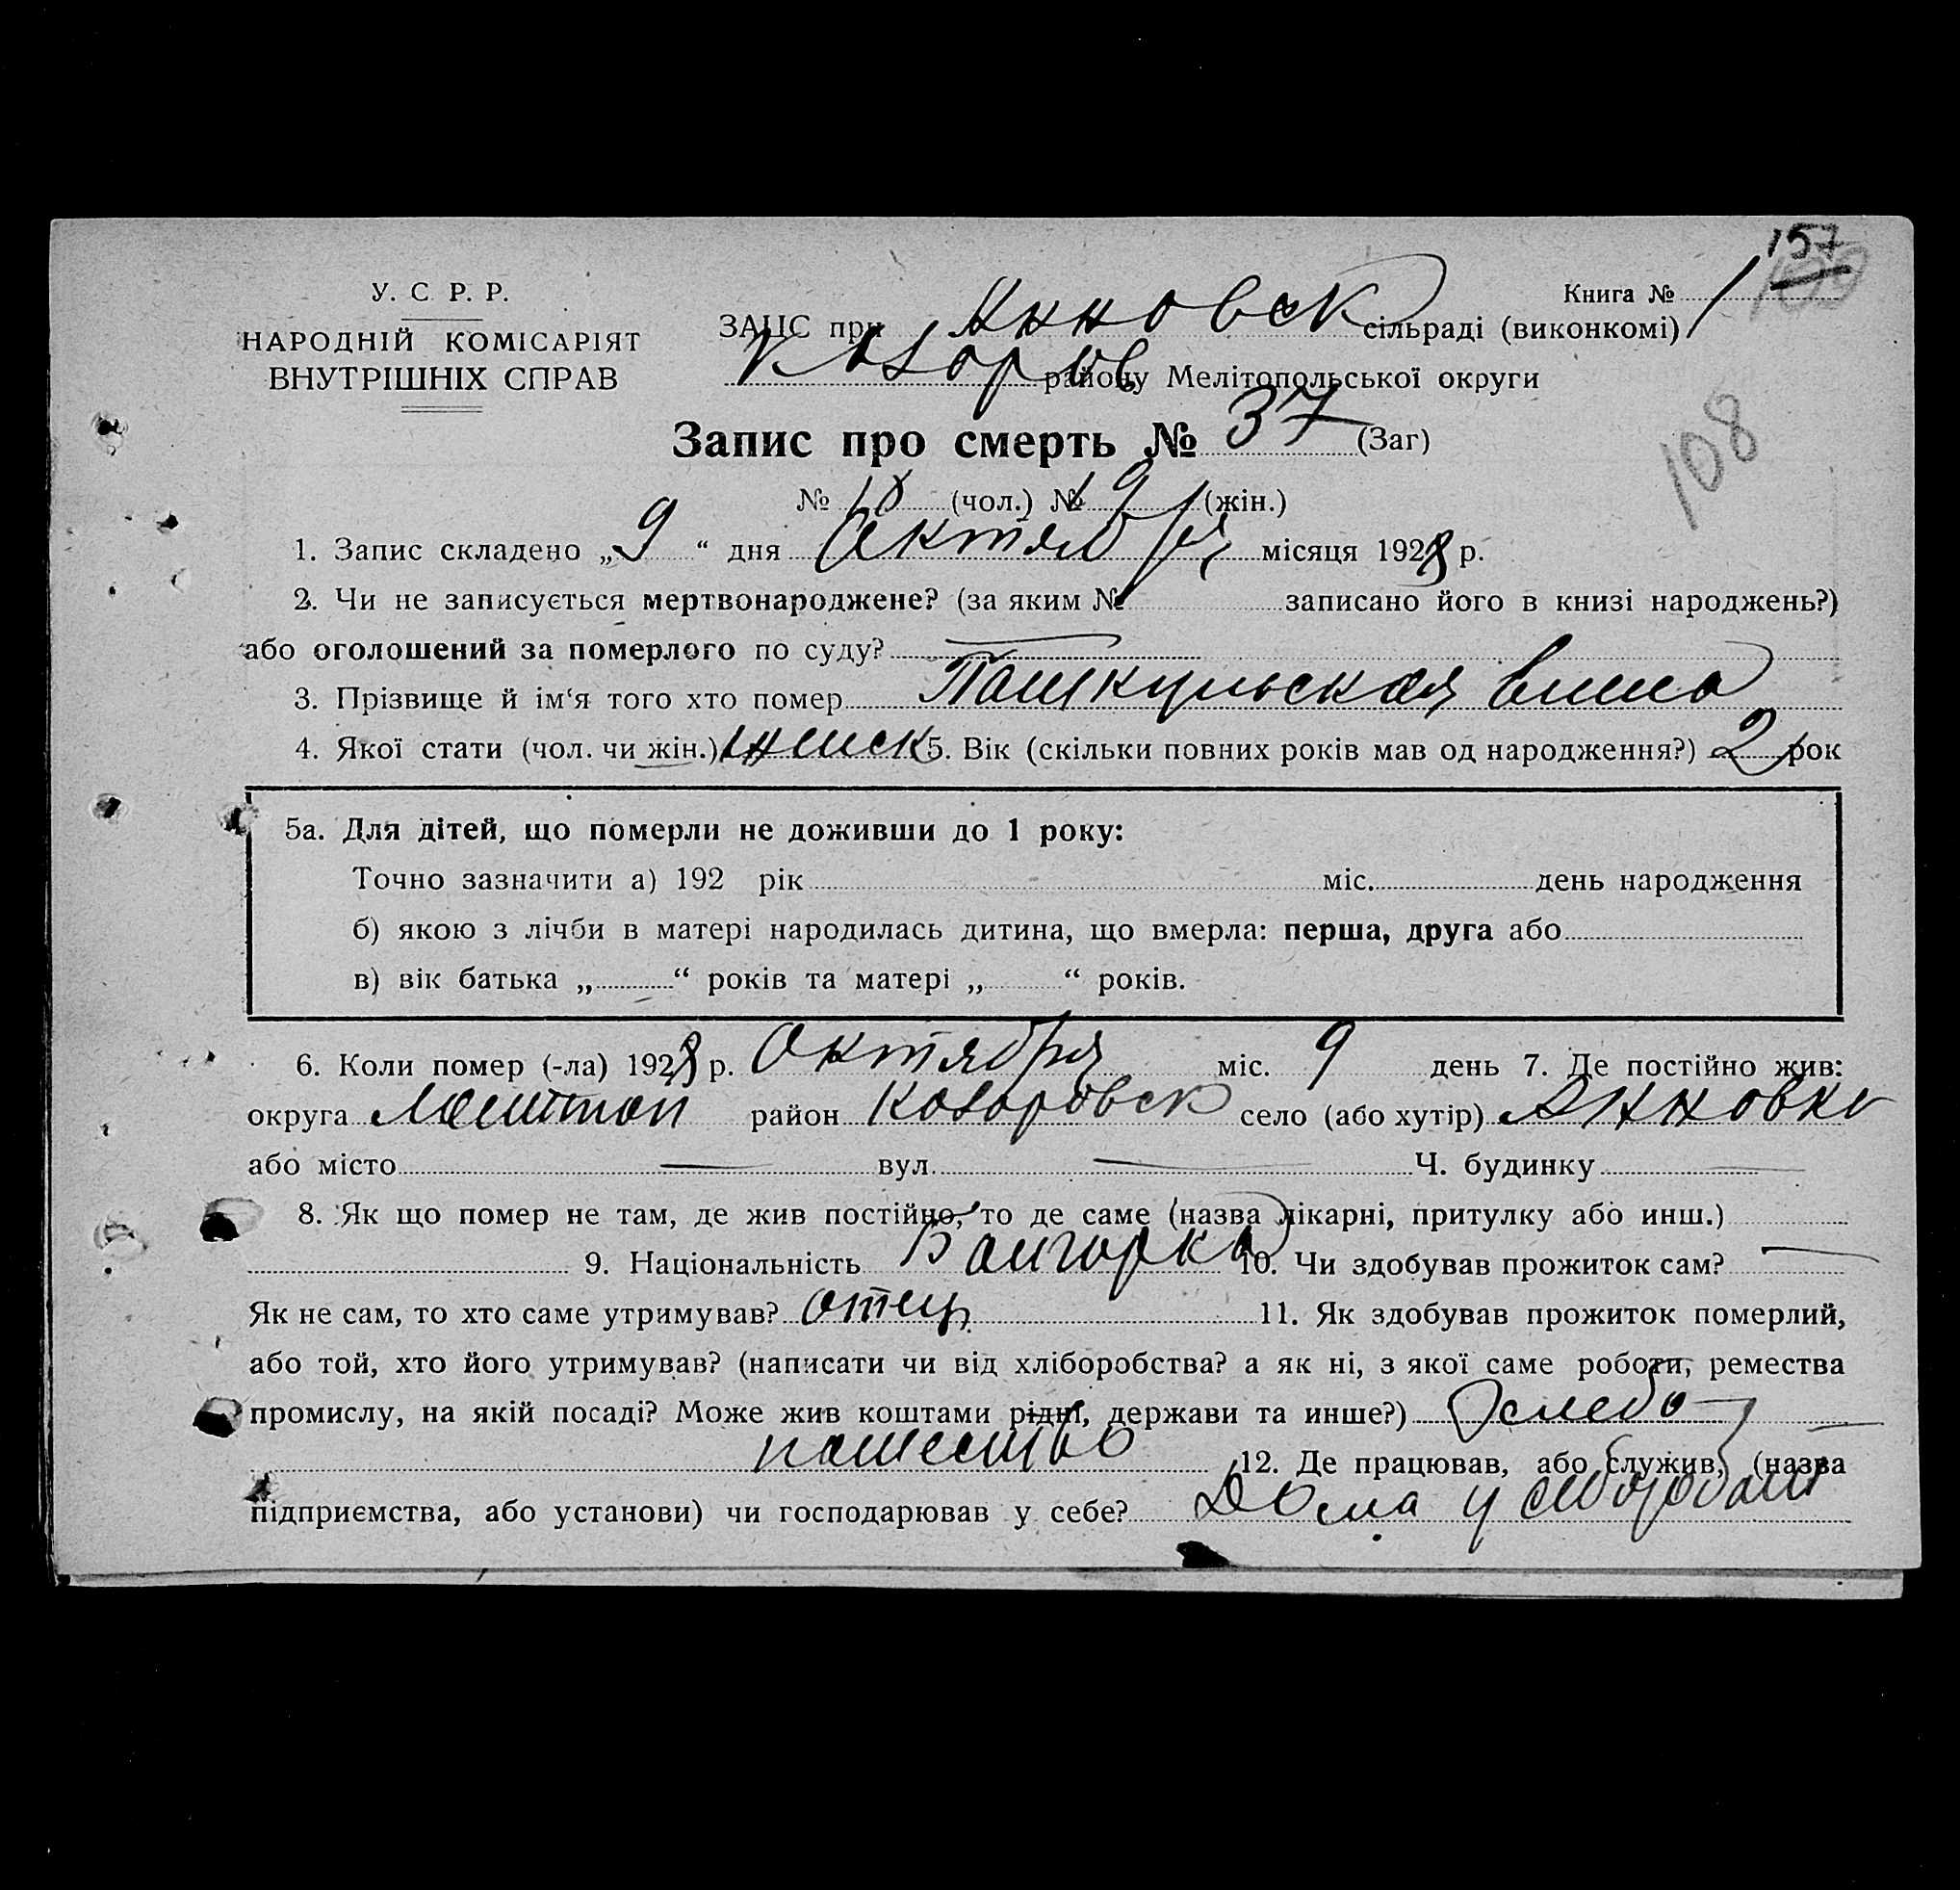 157
У. С Р. Р.
Книга № 1
НАРОДНІЙ КОМІСАРІЯТ
ВНУТРІШНІХ СПРАВ
ЗАЦС при Анновск сільраді (виконкомі)
району Мелітопольської округи
Запис про смерть № 37 (Заг)
108
№ 18 (чол.) № 19 (жін.)
1. Запис складено „ 9 “ дня Октября місяця 1928 р.
2. Чи не записується мертвонароджене? (за яким № записано його в книзі народжень?)
або оголошений за померлого по суду?
3. Прізвище й ім‘я того хто помер
4. Якої стати (чол. чи жін.) женск 5. Вік (скільки повних років мав од народження?) 2 рок
5а. Для дітей, що померли не доживши до 1 року:
Точно зазначити а) 192 рік міс. день народження
б) якою з лічби в матері народилась дитина, що вмерла: перша, друга або
в) вік батька „ “ років та матері „ “ років.
6. Коли помер (-ла) 1928 р. Октября міс. 9 день 7. Де постійно жив:
округа район село (або хутір) Анновка
або місто вул. Ч. будинку
8. Як що помер не там, де жив постійно, то де саме (назва лікарні, притулку або инш.)
9. Національність Болгорка 10. Чи здобував прожиток сам?
Як не сам, то хто саме утримував? отец 11. Як здобував прожиток померлий,
або той, хто його утримував? (написати чи від хліборобства? а як ні, з якої саме роботи, ремества
промислу, на якій посаді? Може жив коштами рідні, держави та инше?)
12. Де працював, або служив, (назва
підприємства, або установи) чи господарював у себе? Дома у